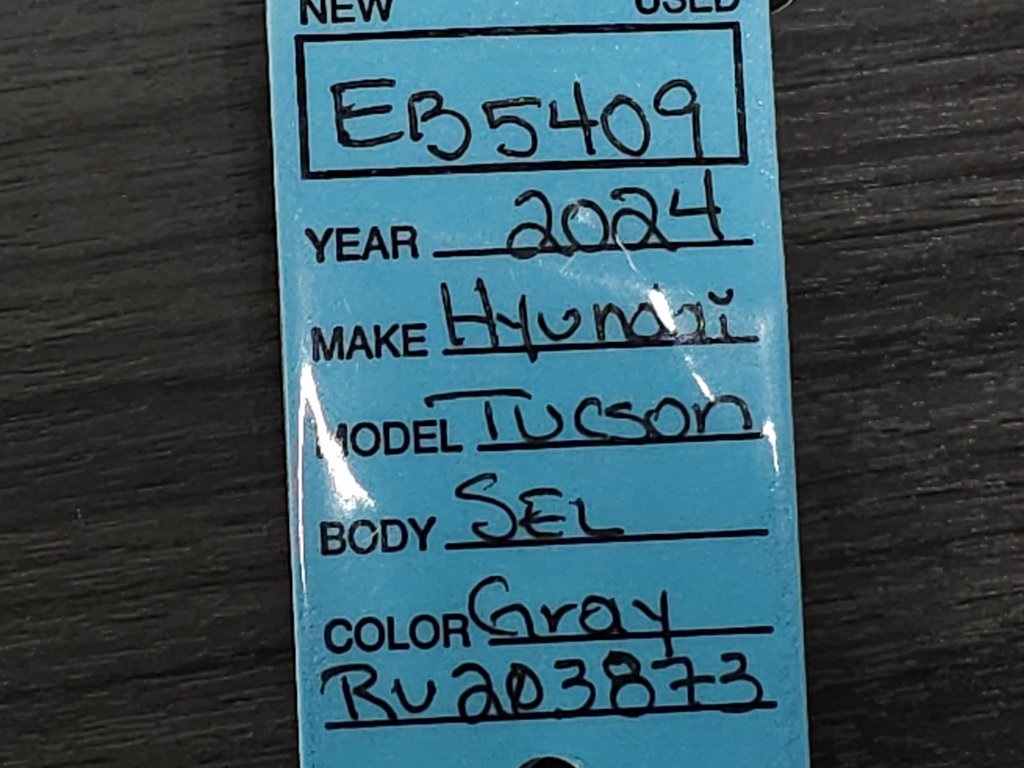 NEW USED
EB5409
YEAR 2024
MAKE Hyundai
MODEL Tucson
BODY SEL
COLOR Gray
RU203873